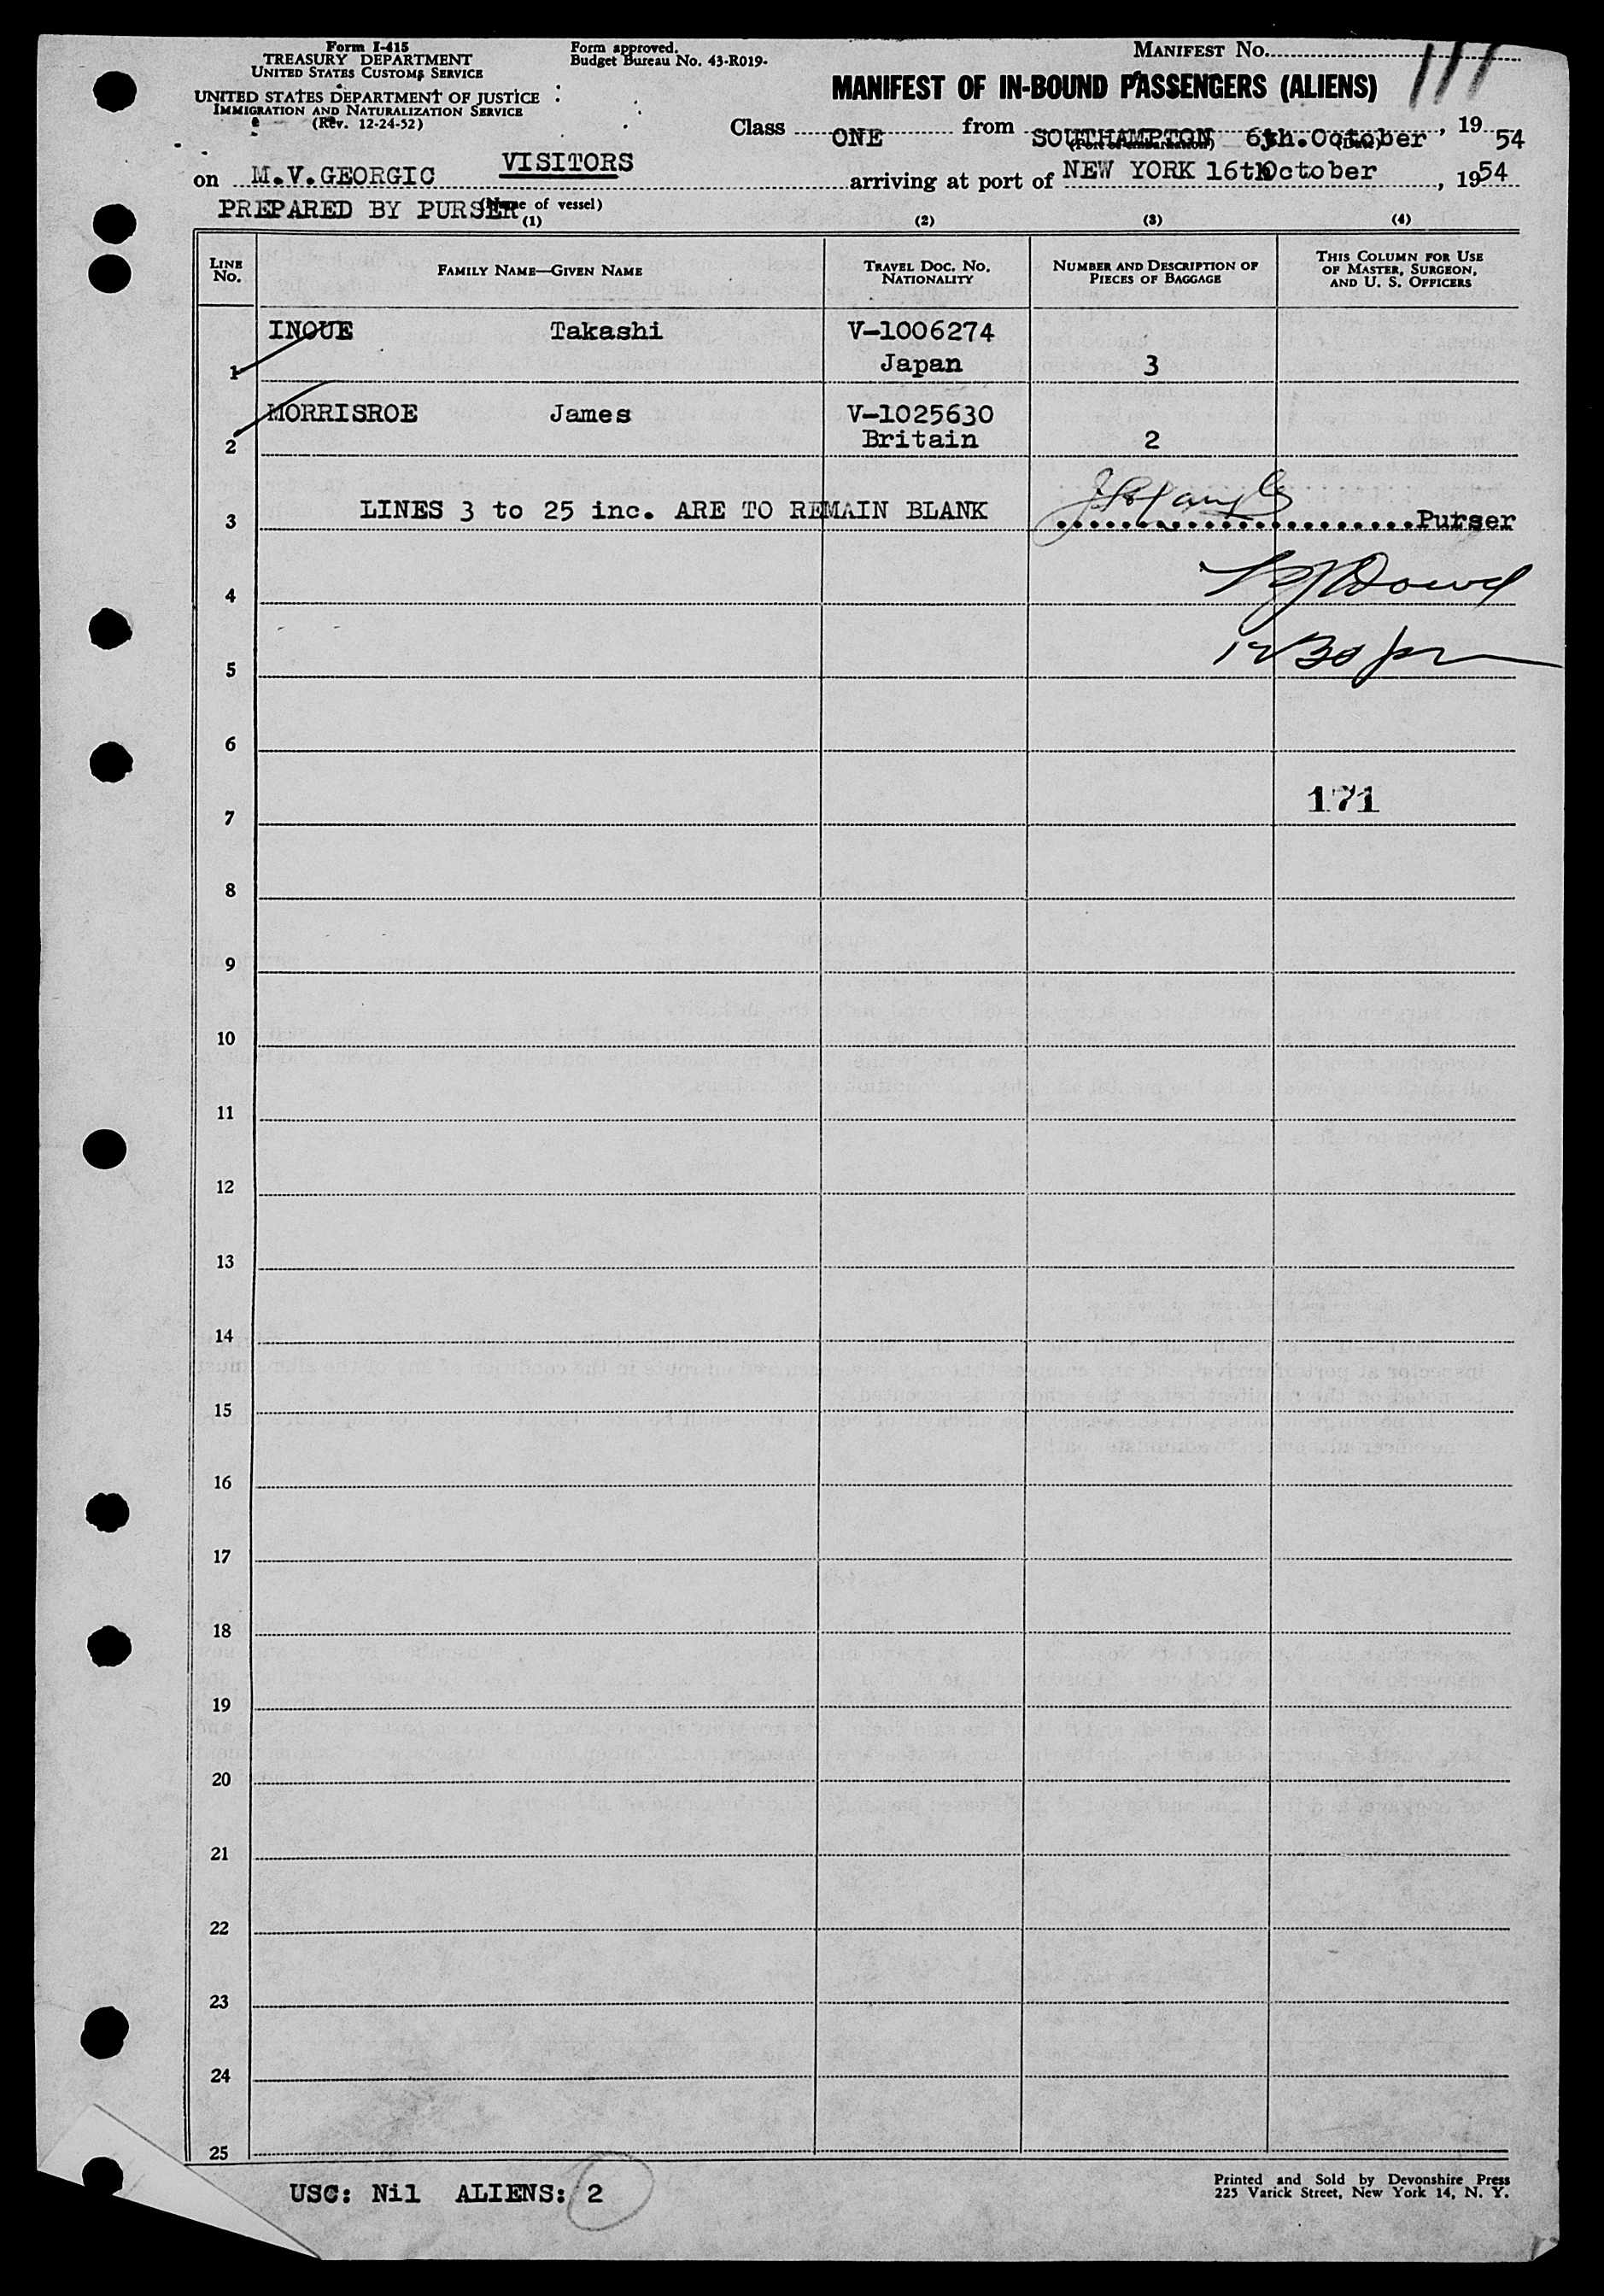 Form I-415
TREASURY DEPARTMENT
UNITED STATES CUSTOMS SERVICE
UNITED STATES DEPARTMENT OF JUSTICE
IMMIGRATION AND NATURALIZATION SERVICE
(Rev. 12-24-52)
Form approved.
Budget Bureau No. 43-R019.
MANIFEST NO. 111
MANIFEST OF IN-BOUND PASSENGERS (ALIENS)
Class ONE from SOUTHAMPTON 6th. October, 1954
(Port of embarkation) (Date)
on M.V. GEORGIC VISITORS arriving at port of NEW YORK 16th October, 1954
PREPARED BY PURSER (Name of vessel)
(1) (2) (3) (4)
LINE NO. FAMILY NAME—GIVEN NAME TRAVEL DOC. NO. NATIONALITY NUMBER AND DESCRIPTION OF PIECES OF BAGGAGE THIS COLUMN FOR USE OF MASTER, SURGEON, AND U. S. OFFICERS
INOUE Takashi V-1006274
1 Japan 3
MORRISROE James V-1025630
2 Britain 2
3 LINES 3 to 25 inc. ARE TO REMAIN BLANK Purser
4
5 12 30 pm
6
7 171
8
9
10
11
12
13
14
15
16
17
18
19
20
21
22
23
24
25
USC: Nil ALIENS: 2
Printed and Sold by Devonshire Press
225 Varick Street, New York 14, N. Y.